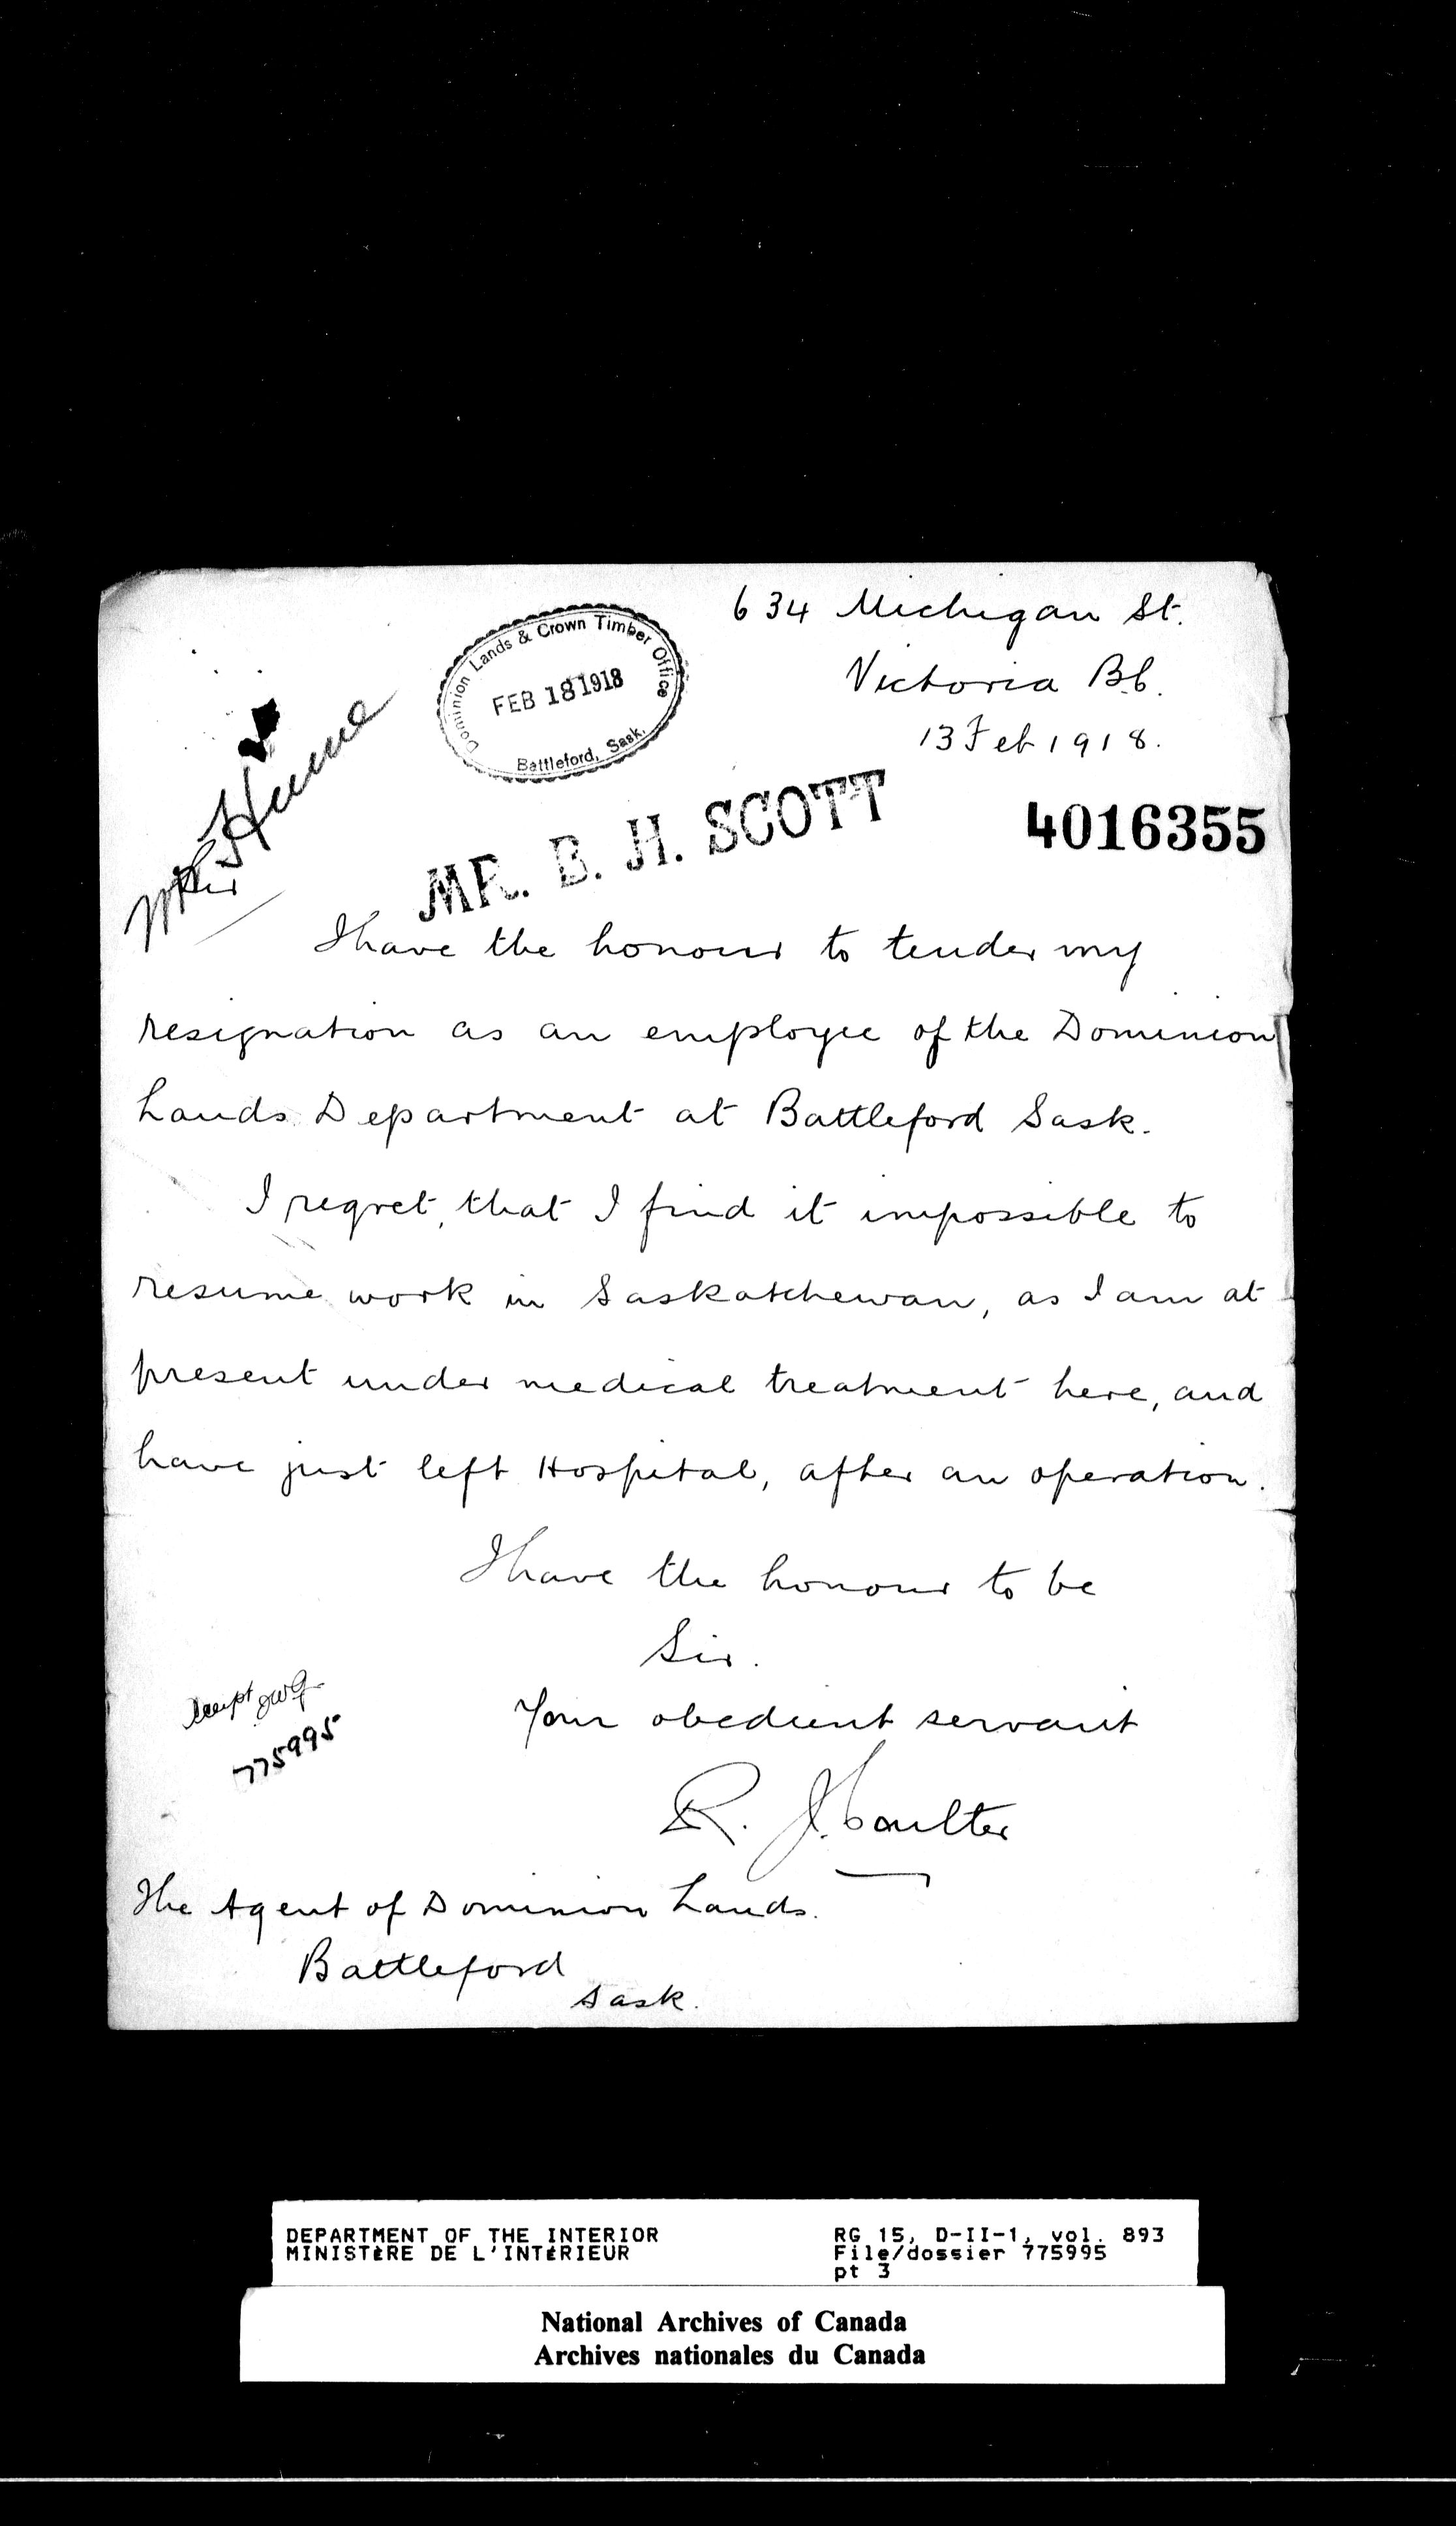 634 Michigan St.
Victoria B.C.
13 Feb 1918.
Dominion Lands & Crown Timber Office
FEB 18 1918
Battleford, Sask.
Mr Hume
MR. B. H. SCOTT
4016355
Sir
I have the honour to tender my
resignation as an employee of the Dominion
Lands Department at Battleford Sask.
I regret, that I find it impossible to
resume work in Saskatchewan, as I am at
present under medical treatment here, and
have just left Hospital, after an operation.
I have the honour to be
Sir.
Your obedient servant
R. J. Coulter
775995
The Agent of Dominion Lands.
Battleford
Sask.
DEPARTMENT OF THE INTERIOR
MINISTÈRE DE L'INTÉRIEUR
RG 15, D-II-1, vol. 893
File/dossier 775995
pt 3
National Archives of Canada
Archives nationales du Canada